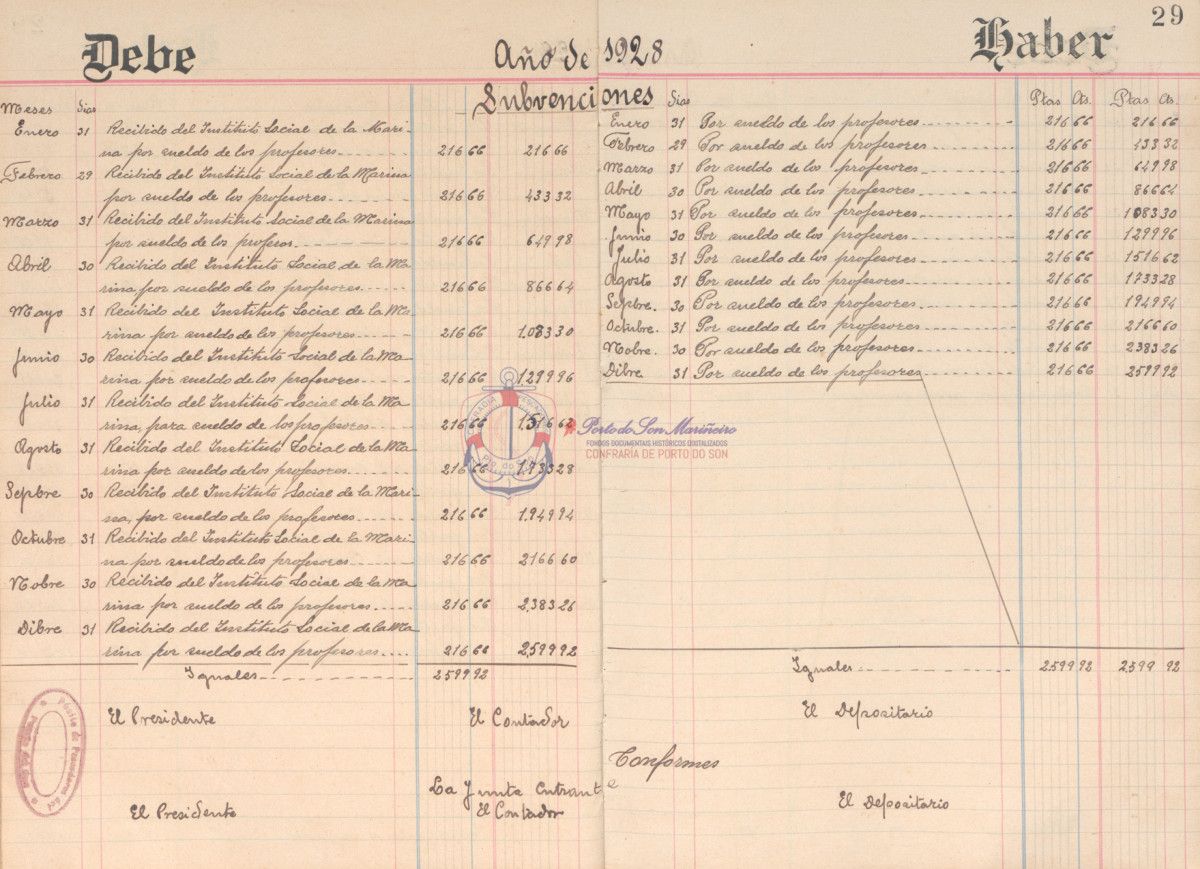 29
Debe
Año de 1928
Haber
Subvenciones
Meses Dias
Enero 31 Recibido del Instituto Social de la Mari-
na por sueldo de los profesores 216 66 216 66
Febrero 29 Recibido del Instituto Social de la Marina
por sueldo de los profesores 216 66 433 32
Marzo 31 Recibido del Instituto Social de la Marina
por sueldo de los profesos 216 66 649 98
Abril 30 Recibido del Instituto Social de la Ma
rina por sueldo de los profesores 216 66 866 64
Mayo 31 Recibido del Instituto Social de la Ma
rina por sueldo de los profesores 216 66 1.083 30
Junio 30 Recibido del Instituto Social de la Ma
rina por sueldo de los profesores 216 66 1.299 96
Julio 31 Recibido del Instituto Social de la Ma
rina, para sueldo de los profesores 216 66 1.516 62
Agosto 31 Recibido del Instituto Social de la Ma
rina por sueldo de los profesores 216 66 1.733 28
Sepbre 30 Recibido del Instituto Social de la Mari-
na, por sueldo de los profesores 216 66 1.949 94
Octubre 31 Recibido del Instituto Social de la Mari-
na por sueldo de los profesores 216 66 2166 60
Nobre 30 Recibido del Instituto Social de la Ma
rina por sueldo de los profesores 216 66 2.383 26
Dibre 31 Recibido del Instituto Social de la Ma
rina por sueldo de los profesores 216 66 2.599 92
Iguales 2599 92
El Presidente El Contador
La Junta Entrante
El Presidente El Contador
Dias Ptas Cts. Ptas Cts.
Enero 31 Por sueldo de los profesores 216 66 216 66
Febrero 29 Por sueldo de los profesores 216 66 433 32
Marzo 31 Por sueldo de los profesores 216 66 649 98
Abril 30 Por sueldo de los profesores 216 66 866 64
Mayo 31 Por sueldo de los profesores 216 66 1083 30
Junio 30 Por sueldo de los profesores 216 66 1299 96
Julio 31 Por sueldo de los profesores 216 66 1516 62
Agosto 31 Por sueldo de los profesores 216 66 1733 28
Sepbre. 30 Por sueldo de los profesores 216 66 1949 94
Octubre. 31 Por sueldo de los profesores 216 66 2166 60
Nobre. 30 Por sueldo de los profesores 216 66 2383 26
Dibre 31 Por sueldo de los profesores 216 66 2599 92
Iguales 2599 92 2599 92
El Depositario
Conformes
El Depositario
Porto do Son Mariñeiro
FONDOS DOCUMENTAIS HISTÓRICOS DIXITALIZADOS
CONFRARÍA DE PORTO DO SON
Pto. do Son
Pósito de Pescadores del
Puerto del Son